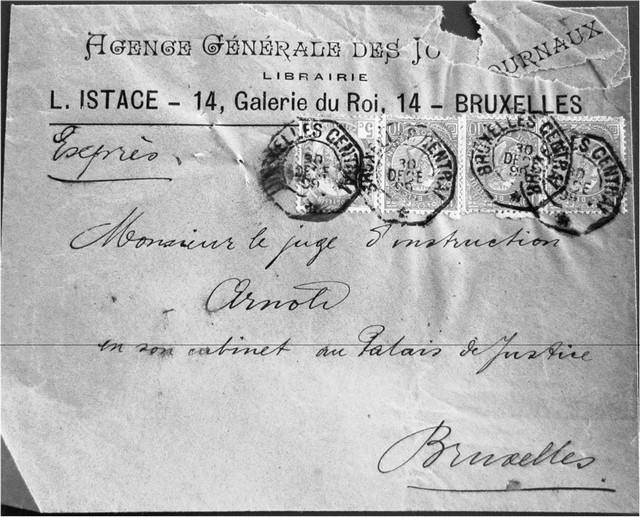 AGENCE GÉNÉRALE DES JO OURNAUX
LIBRAIRIE
L. ISTACE – 14, Galerie du Roi, 14 – BRUXELLES
Exprès
BRUXELLES CENTRAL 30 DECE
BRUX S CENTRAL 30 DECE
BRUXELLES CENTRAL 30 DECE
BRUX ES CENTRAL 30 DECE
Monsieur le juge d'instruction
Arnold
en son cabinet au Palais de Justice
Bruxelles